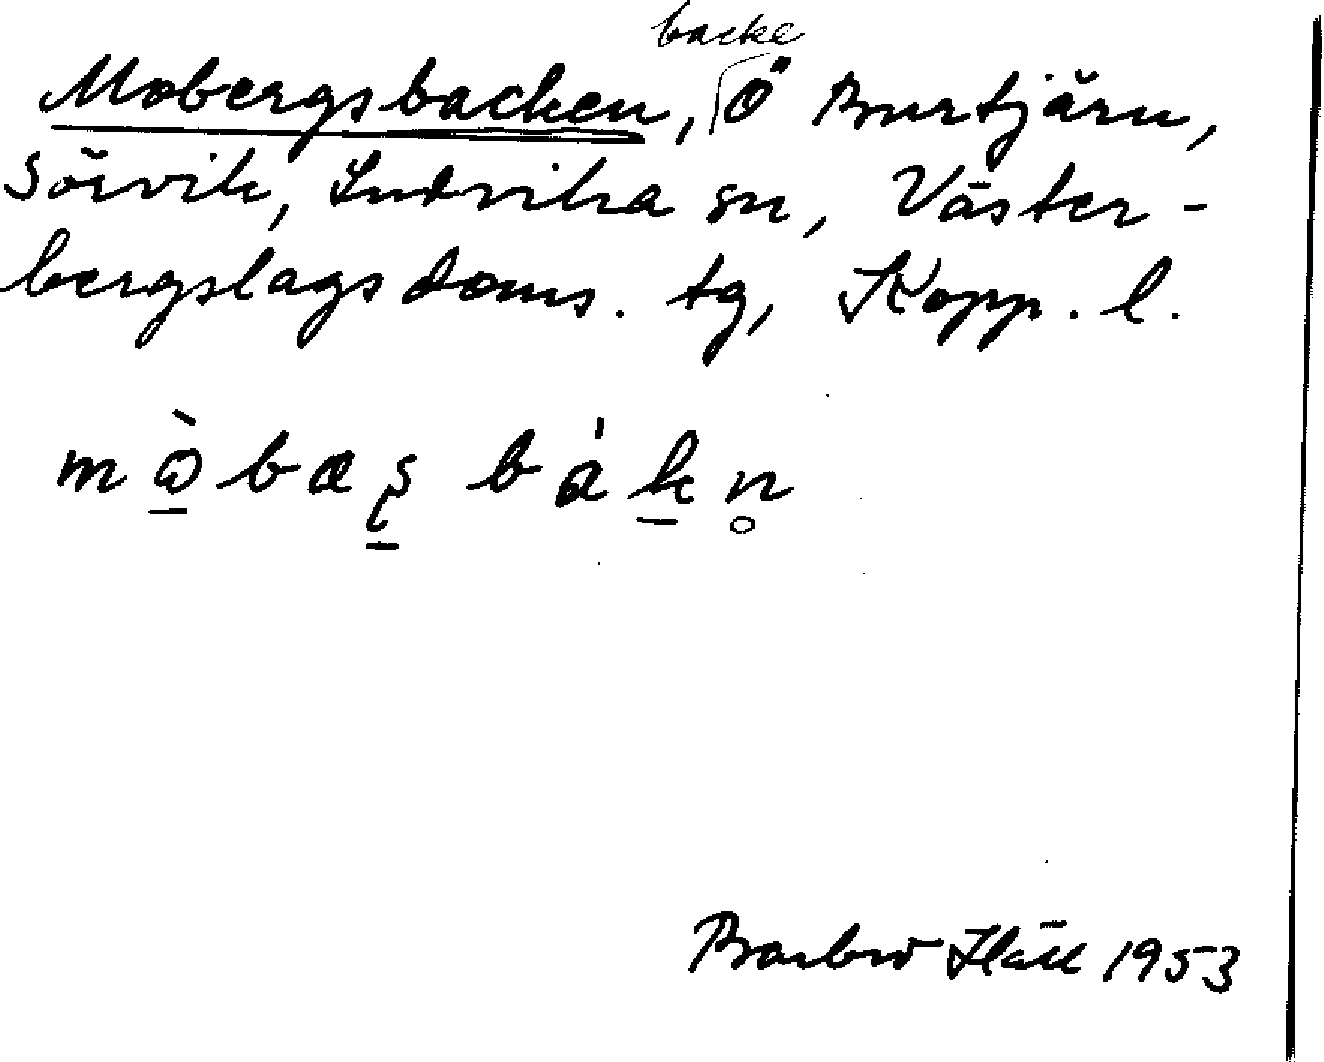 backe
Mobergsbacken, Ö Burtjärn,
Sörvik, Ludvika sn, Väster-
bergslags doms. tg, Kopp. l.
Barbro Häll 1953